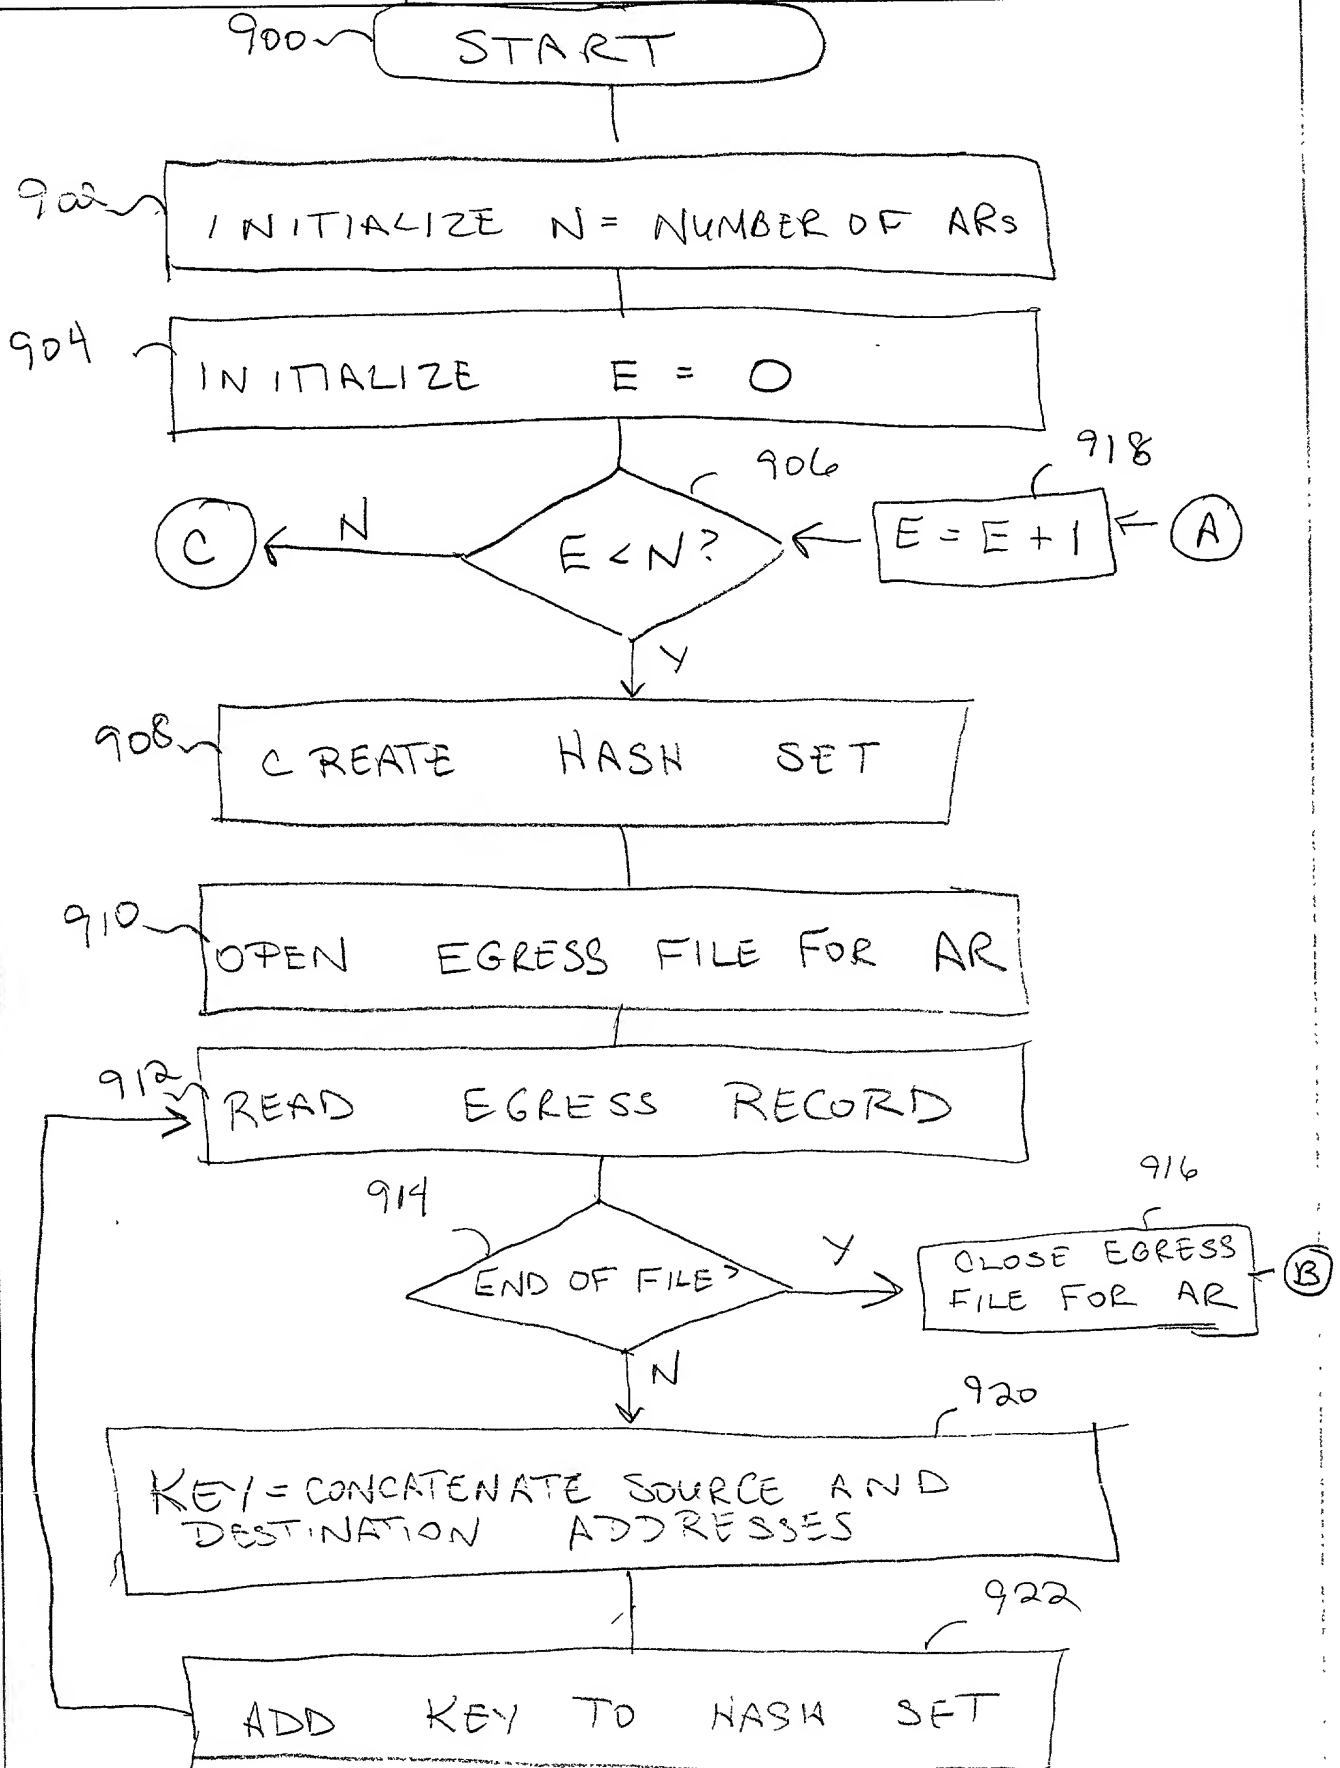 900 START
902
INITIALIZE N = NUMBER OF ARs
904
INITIALIZE E = 0
906
918
C N E < N? E = E + 1 A
Y
908
CREATE HASH SET
910
OPEN EGRESS FILE FOR AR
912
READ EGRESS RECORD
914
916
END OF FILE? Y CLOSE EGRESS
FILE FOR AR B
N
920
KEY = CONCATENATE SOURCE AND
DESTINATION ADDRESSES
922
ADD KEY TO HASH SET